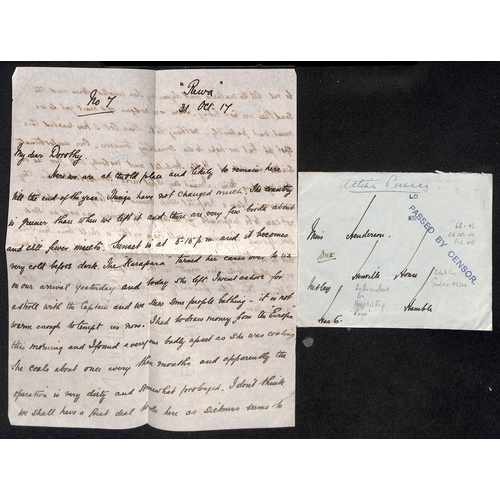 No 7
"Rewa"
31 Oct. 17.
My dear Dorothy.
Here we are at the old place and likely to remain here
till the end of the year. Things have not changed much. The country
is greener than when we left it and there are very few birds about
and still fewer insects. Sunset is at 5-15 p.m and it becomes
very cold before dark. The Karapara turned her cases over to us
on our arrival yesterday and today she left. I went ashore for
a stroll with the Captain and we saw some people bathing - it is not
warm enough to tempt us now. I had to draw money from the Europa
this morning and I found everyone badly upset as she was coaling
She coals about once every three months and apparently the
operation is very dirty and somewhat prolonged. I don't think
we shall have a great deal to do here as sickness seems to
Active Service
PASSED BY CENSOR.
Miss Henderson.
House
Netley
Hamble
Hants
Hospital Ship